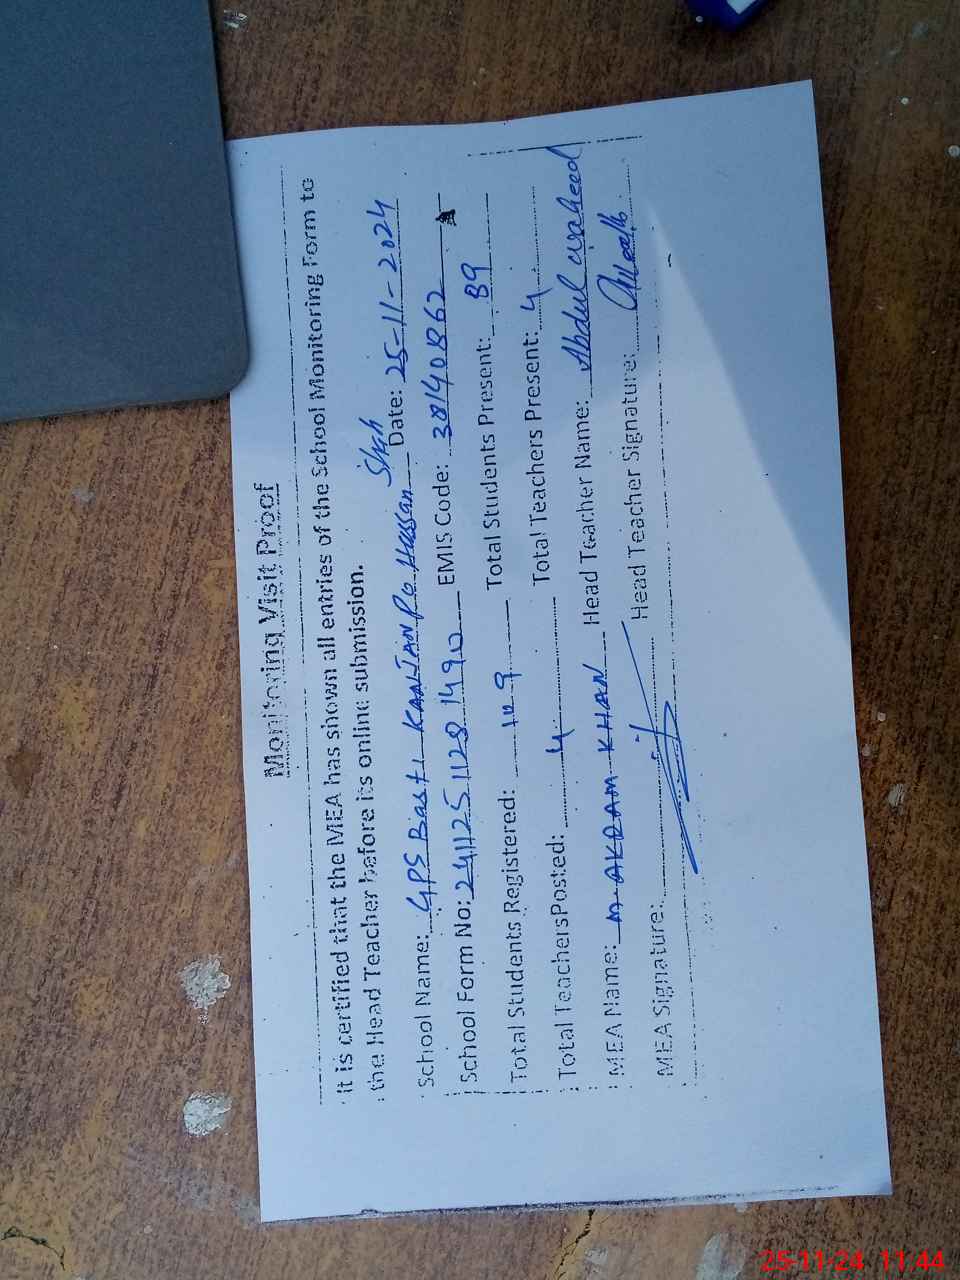 Monitoring Visit Proof
It is certified that the MEA has shown all entries of the School Monitoring Form to
the Head Teacher before its online submission.
School Name: GPS Basti KAALTAN Po Hassan Shah Date: 25-11-2024
School Form No: 241125 1128 1490 EMIS Code: 38140862
Total Students Registered: 109 Total Students Present: 89
Total Teachers Posted: 4 Total Teachers Present: 4
MEA Name: M AKRAM KHAN Head Teacher Name: Abdul waheed
MEA Signature: Head Teacher Signature:
25-11-24 11:44